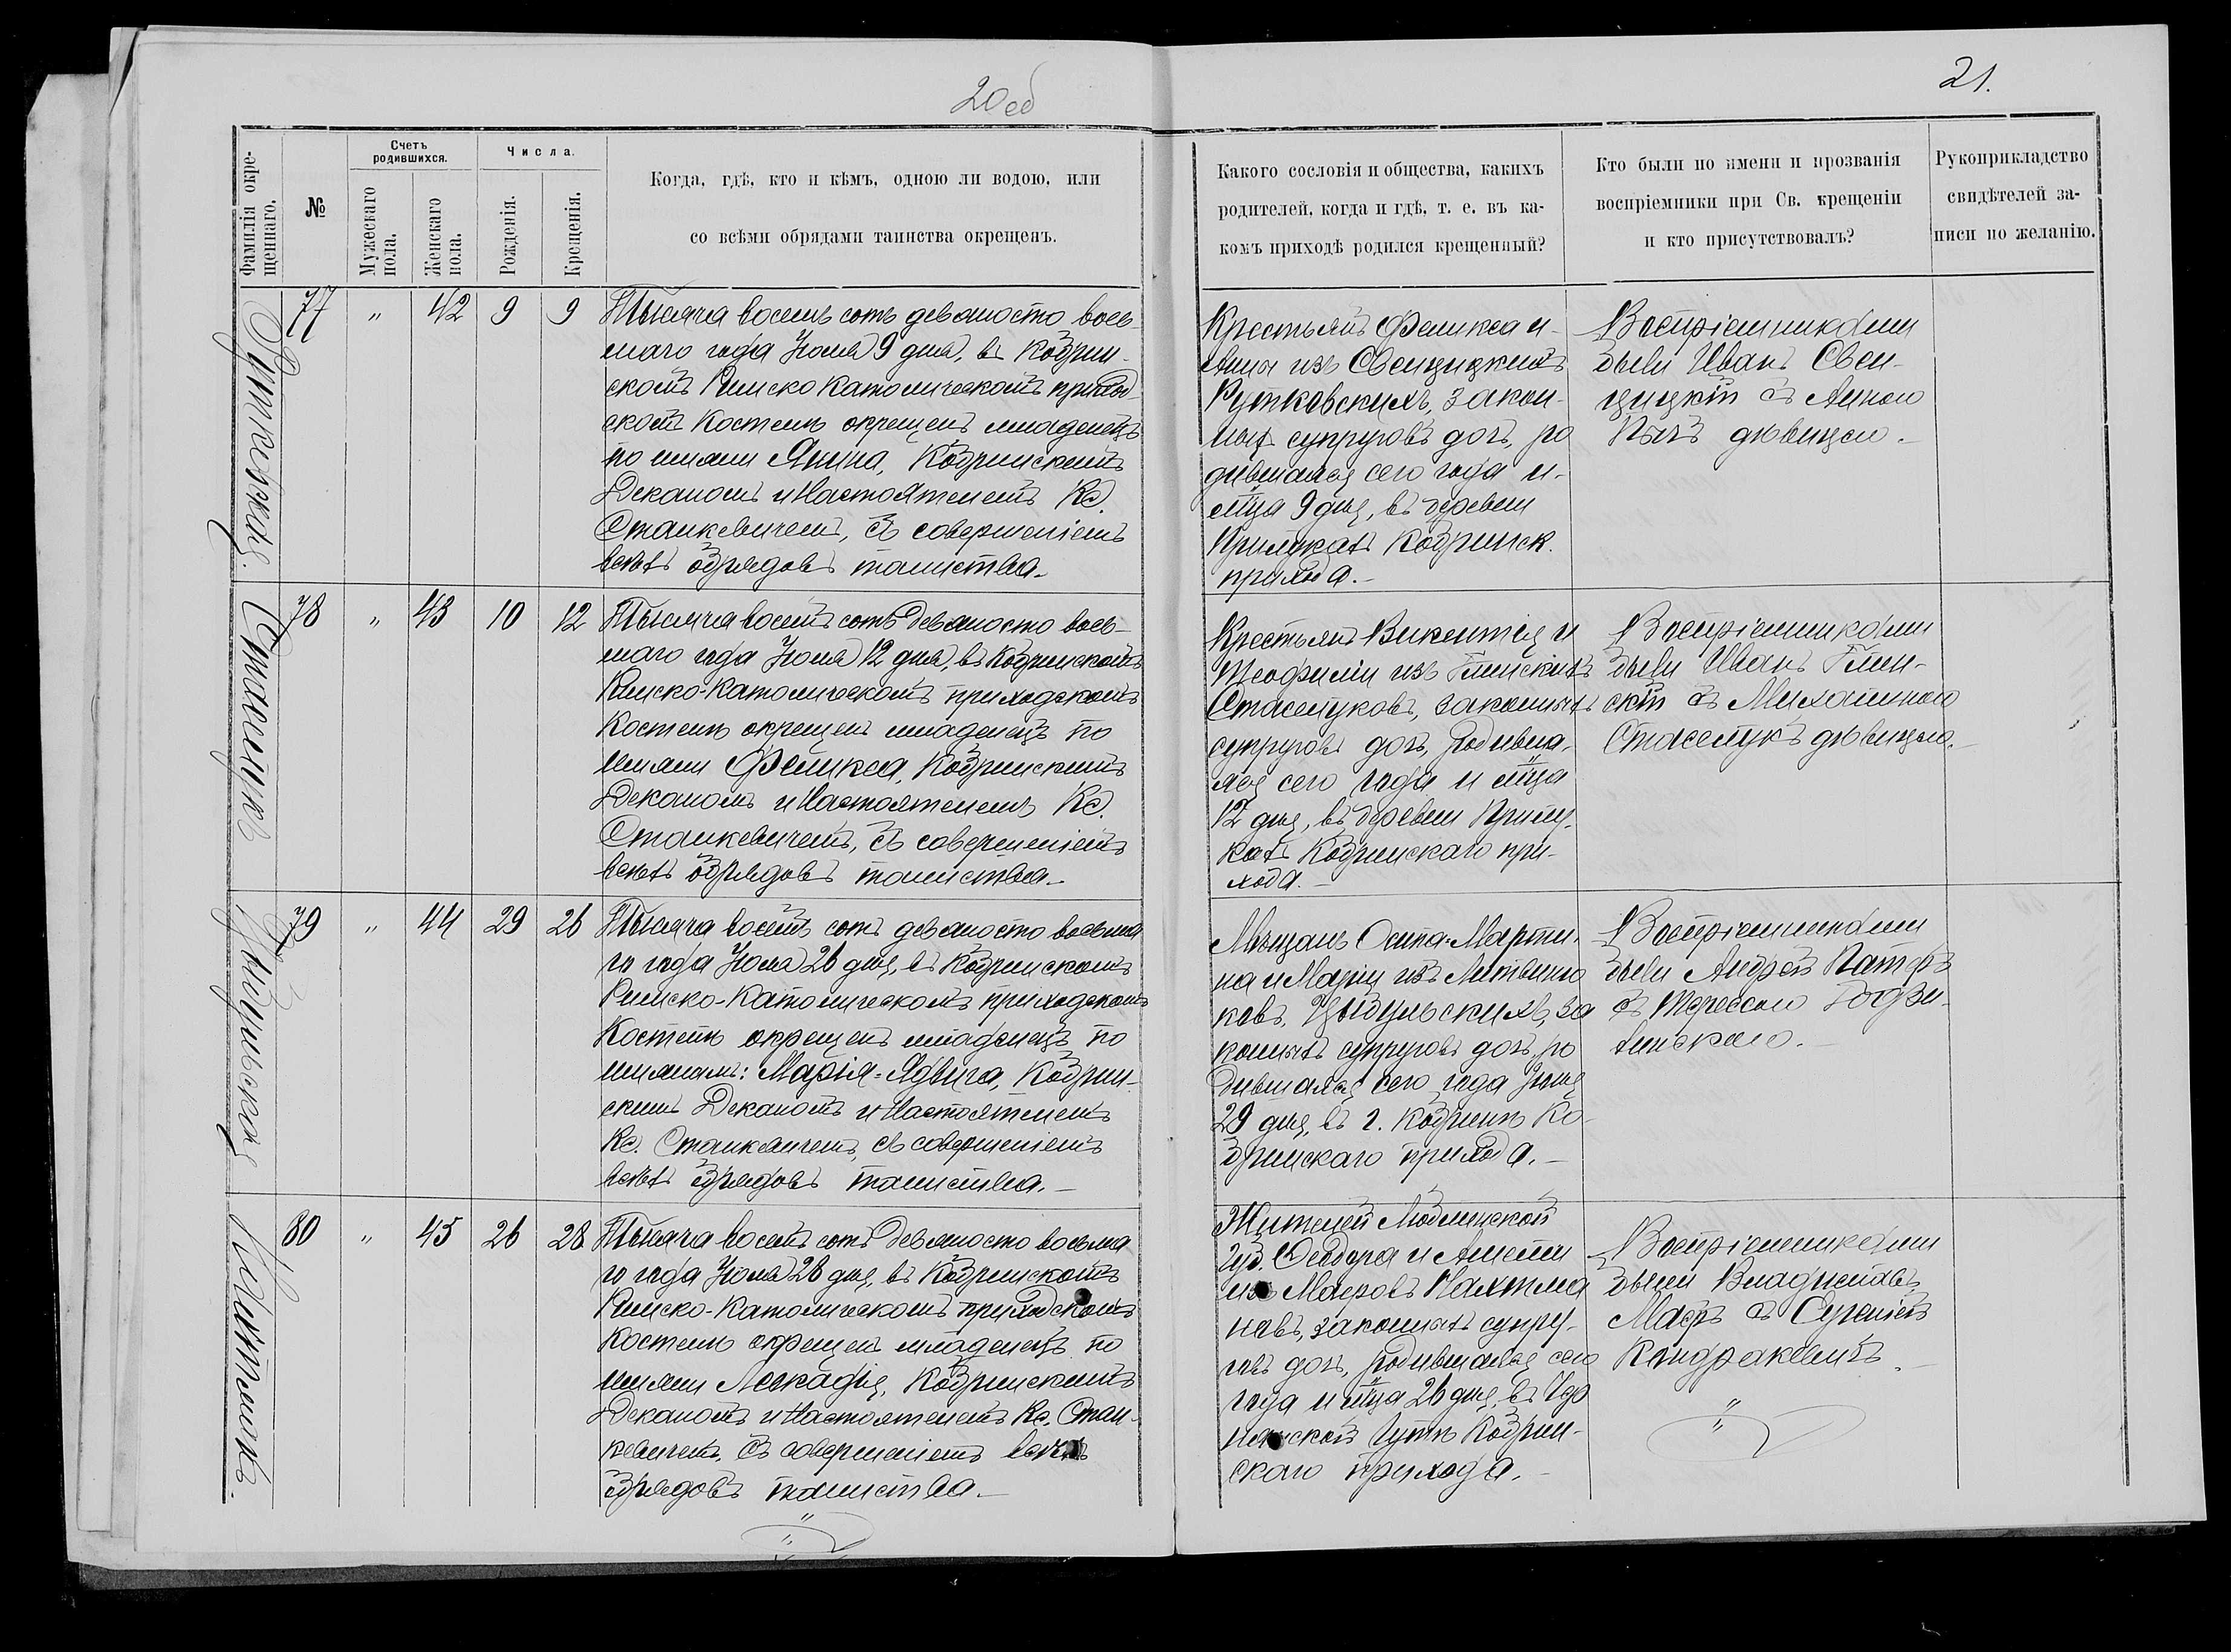 20об
21.
Фамилія окре-
щеннаго.
№
Счетъ
родившихся.
Мужескаго
пола.
Женскаго
пола.
Числа.
Рожденія.
Крещенія.
Когда, гдѣ, кто и кѣмъ, одною ли водою, или
со всѣми обрядами таинства окрещенъ.
Какого сословія и общества, какихъ
родителей, когда и гдѣ, т. е. въ ка-
комъ приходѣ родился крещенный?
Кто были по имени и прозванія
воспріемники при Св. крещеніи
и кто присутствовалъ?
Рукоприкладство
свидѣтелей за-
писи по желанію.
Рутковская.
77 " 42 9 9
Тысяча восемь сотъ девяносто вось-
маго года Іюля 9 дня, въ Кобрин-
скомъ Римско Католическомъ приход-
скомъ Костелѣ окрещенъ младенецъ
по имени Янина, Кобринскимъ
Деканомъ и Настоятелемъ Кс.
Станкевичемъ, съ совершеніемъ
всѣхъ обрядовъ таинства.-
Крестьянъ Феликса и
Анны изъ Свенцицкихъ
Рутковскихъ, закон-
ныхъ супруговъ дочь, ро
дившаяся сего года и
м̃ца 9 дня, въ деревни
Прилукахъ Кобринск.
прихода.-
Воспріемниками
были Иванъ Свен-
цицкій съ Анною
Пыхъ дѣвицею.-
Стасепукъ
78 " 43 10 12
Тысяча восемь сотъ девяносто вось-
маго года Іюля 12 дня, въ Кобринскомъ
Римско-Католическомъ приходскомъ
Костелѣ окрещенъ младенецъ по
имени Феликса, Кобринскимъ
Деканомъ и Настоятелемъ Кс.
Станкевичемъ, съ совершеніемъ
всѣхъ обрядовъ таинства.-
Крестьянъ Викентія и
Теофиліи изъ Глинскихъ
Стасепуковъ, законныхъ
супруговъ дочь, родивша-
яся сего года и м̃ца
12 дня, въ деревни Прилу-
кахъ Кобринскаго при-
хода.-
Воспріемниками
были Иванъ Глин-
скій съ Михалиною
Стасепукъ дѣвицею.-
Цыбульская
79 " 44 29 26
Тысяча восемь сотъ девяносто восьма
го года Іюля 26 дня, въ Кобринскомъ
Римско-Католическомъ приходскомъ
Костелѣ окрещенъ младенецъ по
именамъ: Марія-Ядвига, Кобрин-
скимъ Деканомъ и Настоятелемъ
Кс. Станкевичемъ, съ совершеніемъ
всѣхъ обрядовъ таинства.-
Мѣщанъ Осипа-Марти-
на и Маріи изъ Литвино
ковъ, Цыбульскихъ, за
конныхъ супруговъ дочь, ро
дившаяся сего года Іюня
29 дня, въ г. Кобринѣ Ко-
бринскаго прихода.-
Воспріемниками
были Андрей
съ Терессою
80 " 45 26 28
Тысяча восемь сотъ девяносто восьма
го года Іюля 28 дня, въ Кобринскомъ
Римско-Католическомъ приходскомъ
Костелѣ окрещенъ младенецъ по
имени Леокадія, Кобринскимъ
Деканомъ и Настоятелемъ Кс. Стан-
кевичемъ, съ совершеніемъ всѣхъ
обрядовъ таинства.-
Жителей Люблинской
губ. Ѳеодора и Амеліи
изъ Маеровъ
новъ, законныхъ супру-
говъ дочь, родившаяся сего
года и м̃ца 26 дня, въ
Кобрин-
скаго прихода.-
Воспріемниками
были Владиславъ
Маеръ съ